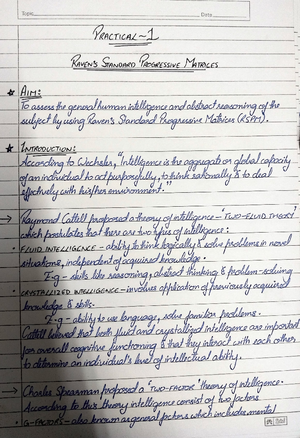 Topic
Date
PRACTICAL-1
RAVEN'S STANDARD PROGRESSIVE MATRICES
★ AIM:
To assess the general human intelligence and abstract reasoning of the
subject by using Raven's Standard Progressive Matrices (RSPM).
★ INTRODUCTION:
According to Wechsler, "Intelligence is the aggregate or global capacity
of an individual to act purposefully, to think rationally & to deal
effectively with his/her environment."
→ Raymond Cattell proposed a theory of intelligence - 'TWO-FLUID THEORY'
which postulates that there are two types of intelligence:
• FLUID INTELLIGENCE - ability to think logically & solve problems in novel
situations, independent of acquired knowledge.
E·g - skills like reasoning, abstract thinking & problem-solving
• CRYSTALLIZED INTELLIGENCE - involves application of previously acquired
knowledge & skills.
E·g - ability to use language, solve familiar problems.
Cattell believed that both fluid and crystallized intelligence are important
for overall cognitive functioning & that they interact with each other
to determine an individual's level of intellectual ability.
→ Charles Spearman proposed a "TWO-FACTOR" theory of intelligence.
According to this theory intelligence consist of two factors
• G-FACTORS - also known as general factors which includes mental